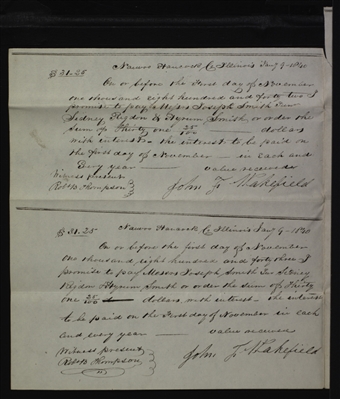 $31.25 Nauvoo Hancock Co Illinois Jany 9-1840
On or before the First day of November
one thousand eight hundred and forty two I
promise to pay Messrs Joseph Smith Jun
Sidney Rigdon & Hyrum Smith or order the
sum of Thirty one 25/100 dollars
with interest the interest to be paid on
the first day of November in each and
Every year value received
Witness present
Robt B Thompson John F Wakefield
$31.25 Nauvoo Hancock Co Illinois Jany 9-1840
On or before the first day of November
one thousand, eight hundred and forty three I
promise to pay Messrs Joseph Smith Jun Sidney
Rigdon Hyrum Smith or order the sum of Thirty
one 25/100 dollars with interest the interest
to be paid on the First day of November in each
and every year value received
Witness present
Robt B Thompson John F Wakefield